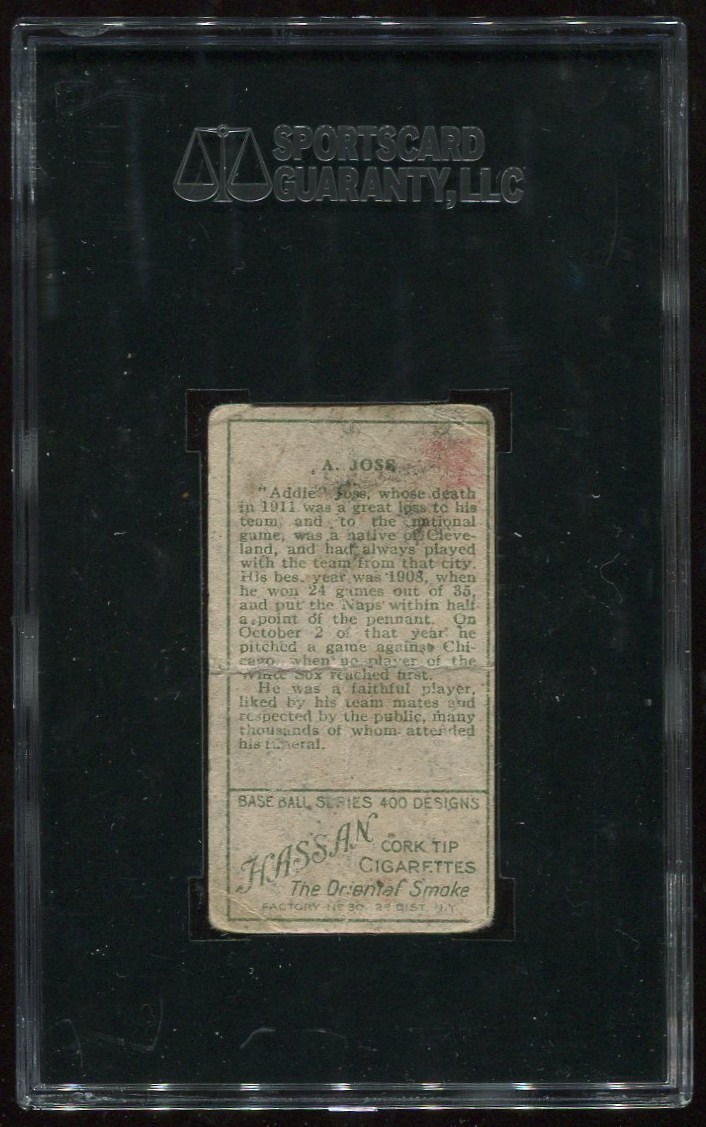 SPORTSCARD
GUARANTY, LLC
A. JOSS
"Addie" Joss, whose death
in 1911 was a great loss to his
team and to the national
game, was a native of Cleve-
land, and had always played
with the team from that city.
His bes. year was 1908, when
he won 24 games out of 35,
and put the Naps within half
a point of the pennant. On
October 2 of that year he
pitched a game against Chi-
cago, when no player of the
White Sox reached first.
He was a faithful player,
liked by his team mates and
respected by the public, many
thousands of whom attended
his funeral.
BASE BALL SERIES 400 DESIGNS
HASSAN
CORK TIP
CIGARETTES
The Oriental Smoke
FACTORY Nº 30, 2D DIST. N.Y.